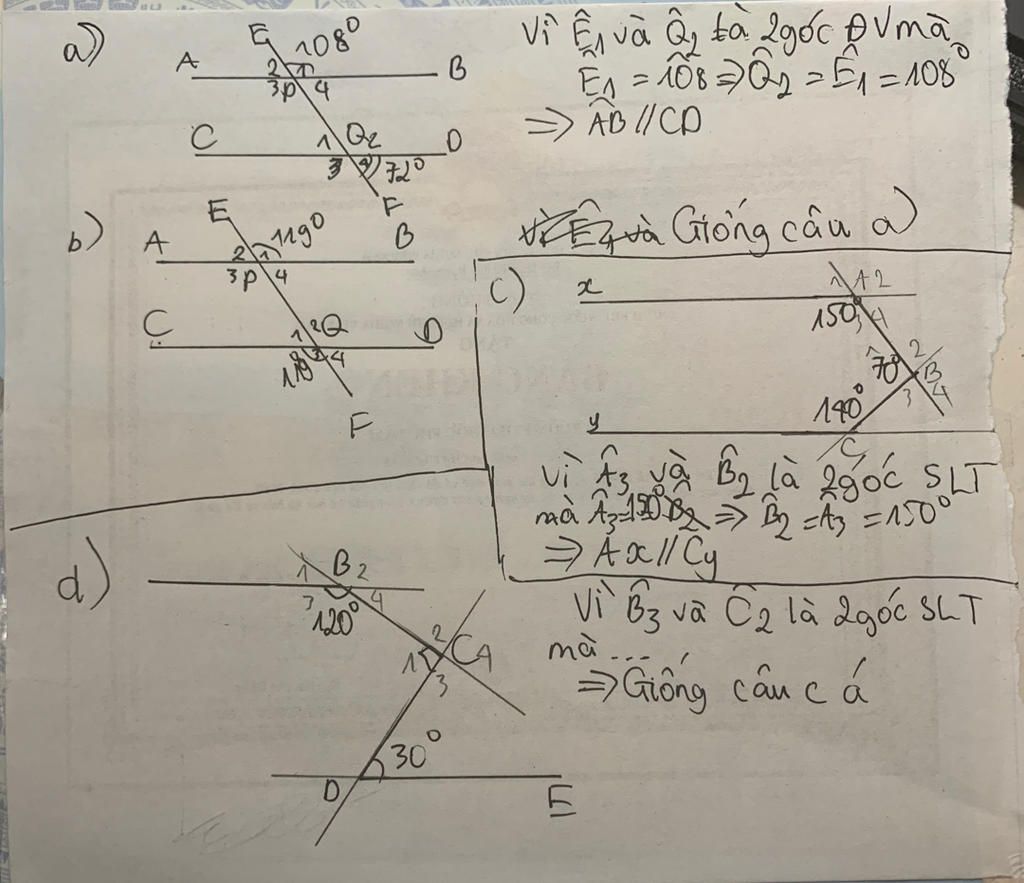 a)
E
108°
A
2 1
B
3 P 4
C
1
Q2
D
3 4
72°
F
Vì Ê1 và Q̂2 là 2góc ĐV mà
Ê1 = 108 => Q̂2 = Ê1 = 108°
=> AB // CD
b)
E
119°
A
2 1
B
3 P 4
C
1 2 Q
D
119
3 4
F
Giống câu a)
c)
x
1 A 2
150°
3 4
2
70°
B
3 4
140°
y
C
Vì Â3 và B̂2 là 2góc SLT
mà Â3=150° => B̂2 = Â3 = 150°
=> Ax // Cy
d)
1 B 2
3 4
120°
2
1 C 4
3
30°
D
E
Vì B̂3 và Ĉ2 là 2góc SLT
mà ...
=> Giống câu c á